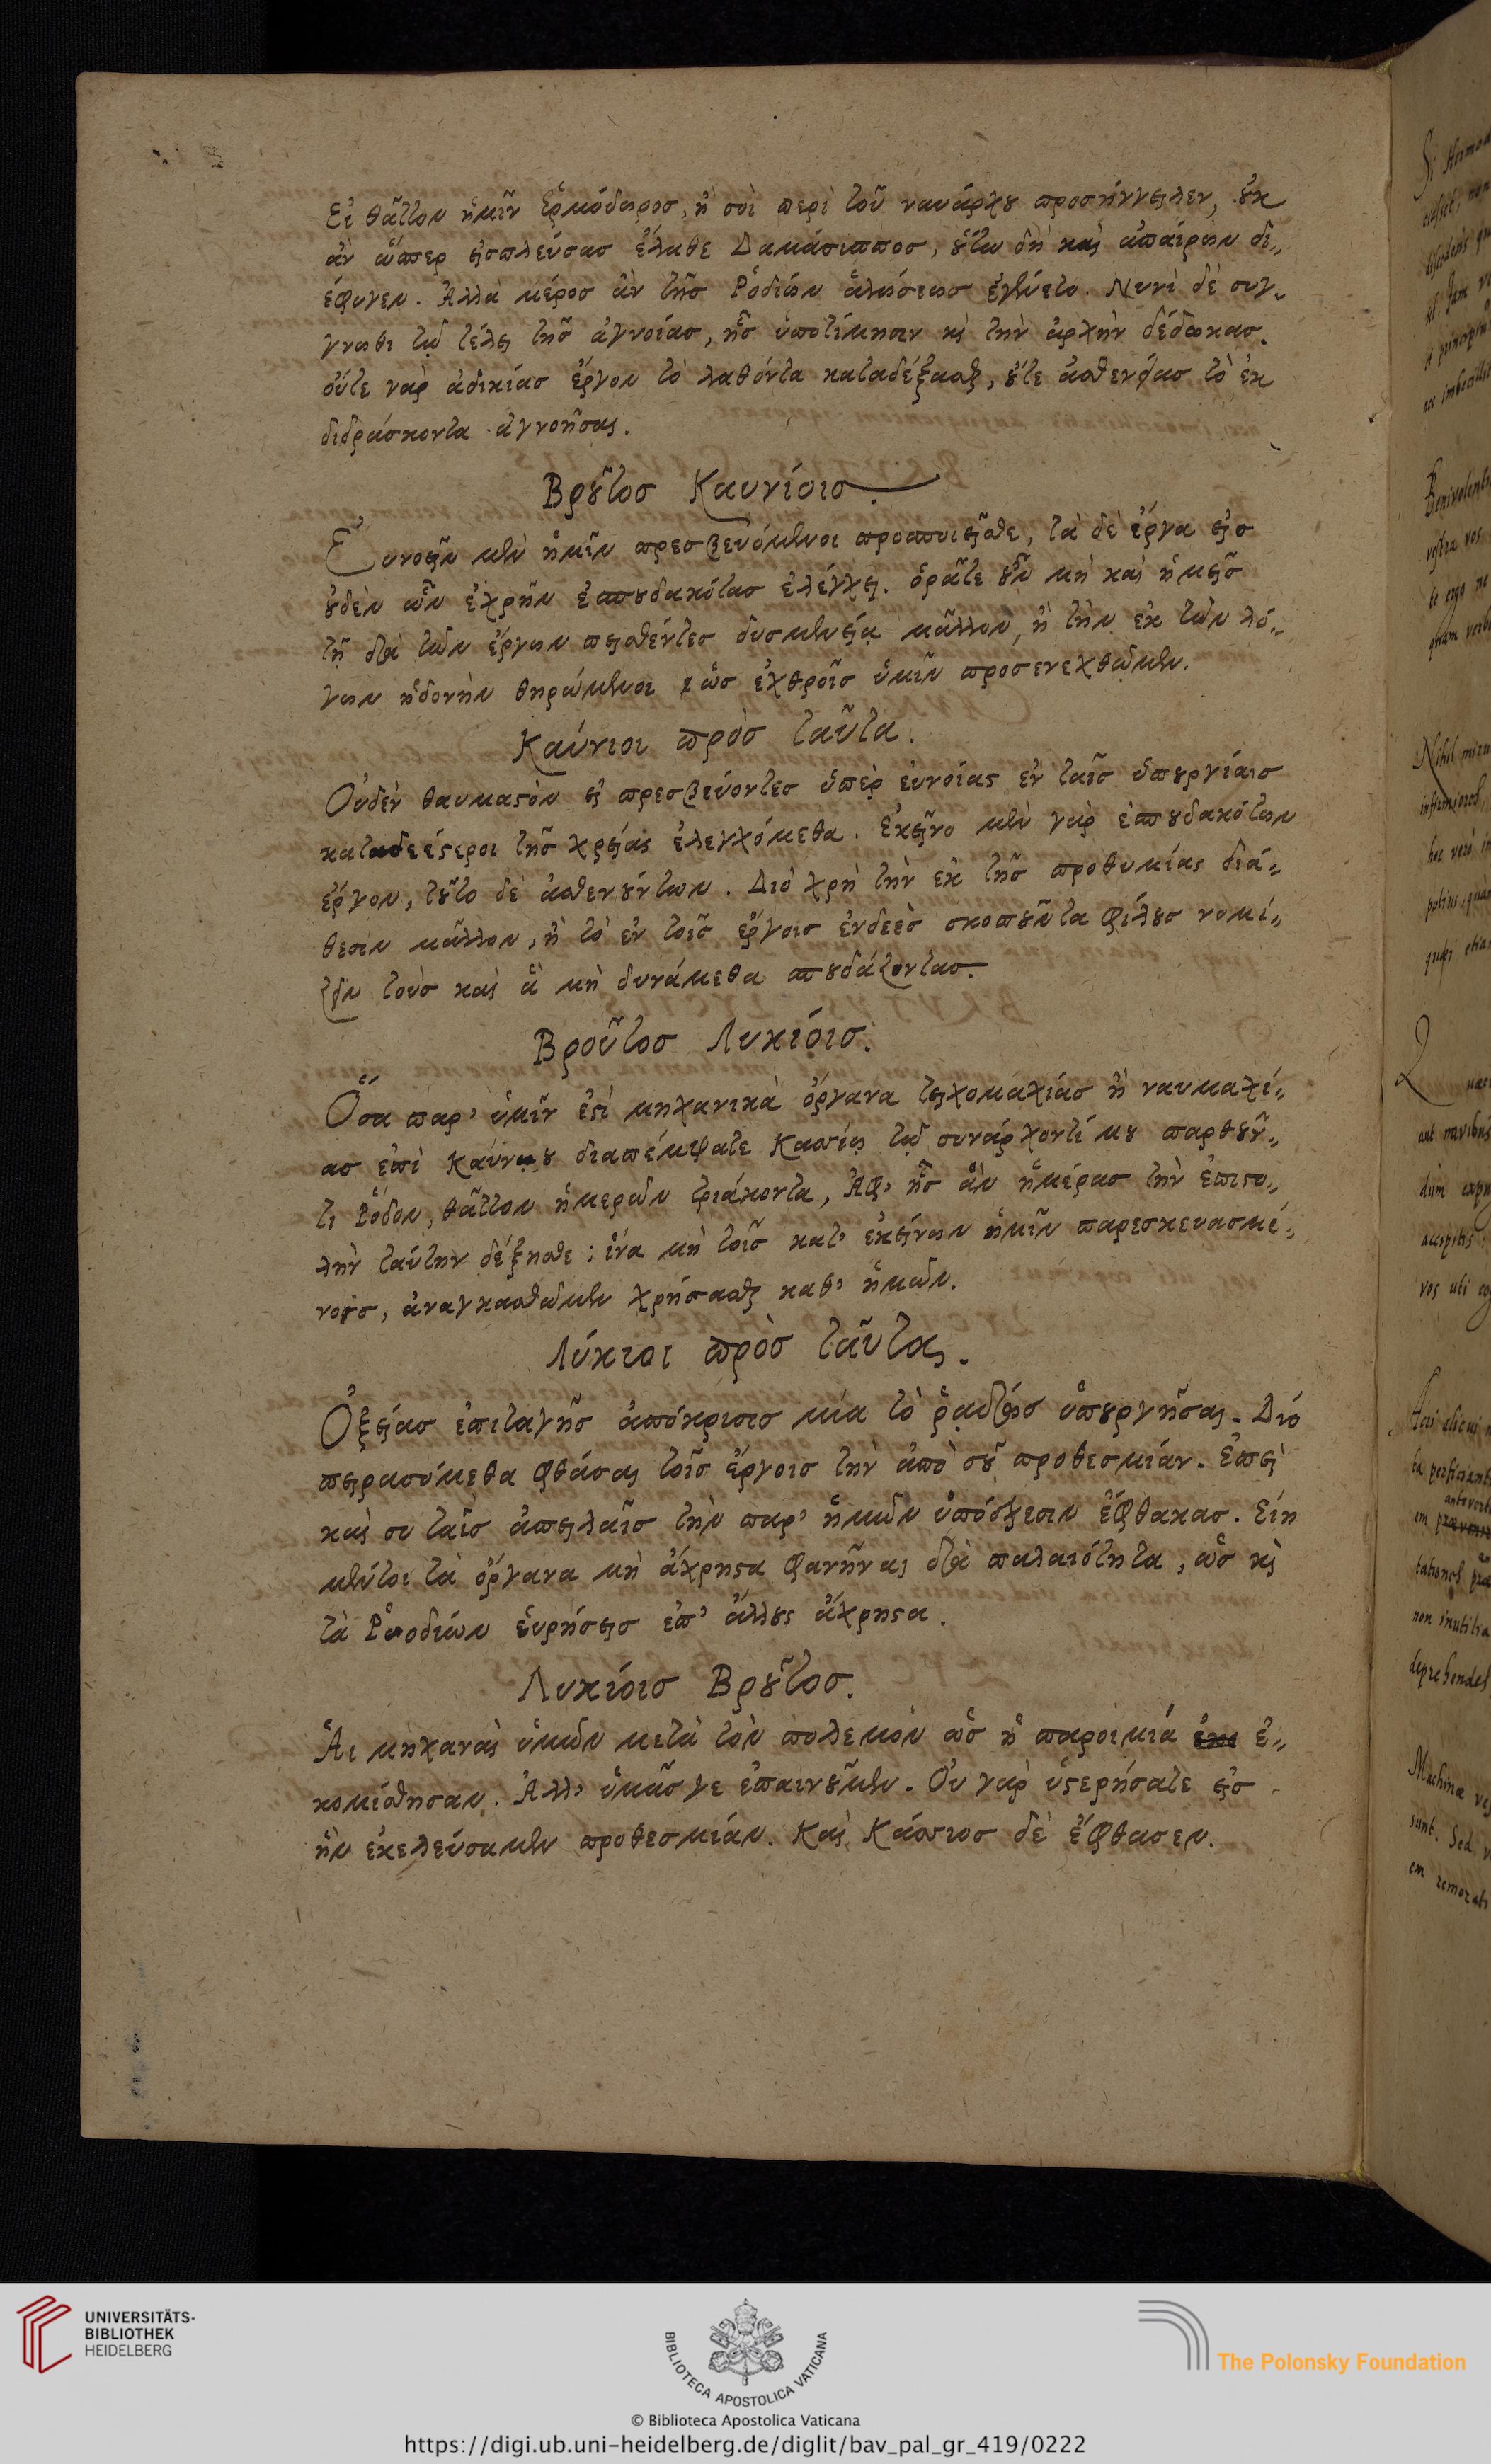 Εἰ θᾶττον ἡμῖν Ἑρμόδωρος, ἢ σοὶ περὶ τοῦ ναυάρχου προσήγγειλεν, οὐκ
ἂν ὥσπερ εἰσπλεύσας ἔλαθε Δαμάσιππος, οὕτω δὴ καὶ ἀπαίρων δι-
έφυγεν. Ἀλλὰ μέρος ἂν τῆς Ῥοδίων ἁλώσεως ἐγένετο. Νυνὶ δὲ συγ-
γνωθι τῷ τέλει τῆς ἀγνοίας, ἧς ὑποτίμησιν καὶ τὴν ἀρχὴν δέδωκας.
οὔτε γὰρ ἀδικίας ἔργον τὸ λαθόντα καταδέξασθαι, οὔτε ἀσθενείας τὸ ἐκ
διδράσκοντα ἀγνοῆσαι.
Βροῦτος Καυνίοις.
Εὐνοεῖν μὲν ἡμῖν πρεσβευόμενοι προσποιεῖσθε, τὰ δὲ ἔργα εἰς
οὐδὲν ὧν ἐχρῆν ἐσπουδακότας ἐλέγχει. ὁρᾶτε οὖν μὴ καὶ ἡμεῖς
τῇ διὰ τῶν ἔργων πεισθέντες δυσμενείᾳ μᾶλλον, ἢ τὴν ἐκ τῶν λό-
γων ἡδονὴν θηρώμενοι ὡς ἐχθροῖς ὑμῖν προσενεχθῶμεν.
Καύνιοι πρὸς ταῦτα.
Οὐδὲν θαυμαστὸν εἰ πρεσβεύοντες ὑπὲρ εὐνοίας ἐν ταῖς ὑπουργίαις
καταδεέστεροι τῆς χρείας ἐλεγχόμεθα. Ἐκεῖνο μὲν γὰρ ἐσπουδακότων
ἔργον, τοῦτο δὲ ἀσθενούντων. Διὸ χρὴ τὴν ἐκ τῆς προθυμίας διά-
θεσιν μᾶλλον, ἢ τὸ ἐν τοῖς ἔργοις ἐνδεὲς σκοποῦντα φίλους νομί-
ζειν τοὺς καὶ ἃ μὴ δυνάμεθα σπουδάζοντας.
Βροῦτος Λυκίοις.
Ὅσα παρ' ὑμῖν ἐστὶ μηχανικὰ ὄργανα τειχομαχίας ἢ ναυμαχί-
ας ἐπὶ Καύνου διαπέμψατε Κασσίῳ τῷ συνάρχοντί μου πορθοῦν-
τι Ῥόδον, θᾶττον ἡμερῶν τριάκοντα, Ἀφ' ἧς ἂν ἡμέρας τὴν ἐπιστο-
λὴν ταύτην δέξησθε: ἵνα μὴ τοῖς κατ' ἐκείνων ἡμῖν παρεσκευασμέ-
νοις, ἀναγκασθῶμεν χρήσασθαι καθ' ἡμῶν.
Λύκιοι πρὸς ταῦτα.
Ὀξείας ἐπιταγῆς ἀπόκρισις μία τὸ ῥᾳδίως ὑπουργῆσαι. Διὸ
πειρασόμεθα φθάσαι τοῖς ἔργοις τὴν ἀπὸ σοῦ προθεσμίαν. Ἐπεὶ
καὶ συ ταῖς ἀπειλαῖς τὴν παρ' ἡμῶν ὑπόσχεσιν ἔφθακας. Εἴη
μέντοι τὰ ὄργανα μὴ ἄχρηστα φανῆναι διὰ παλαιότητα, ὡς καὶ
τὰ Ῥοδίων εὑρήσεις ἐπ' ἄλλους ἄχρηστα.
Λυκίοις Βροῦτος.
Αἱ μηχαναὶ ὑμῶν μετὰ τὸν πόλεμον ὡς ἡ παροιμιά ἐ-
κομίσθησαν. Ἀλλ' ὑμᾶς γε ἐπαινοῦμεν. Οὐ γὰρ ὑστερήσατε εἰς
ἣν ἐκελεύσαμεν προθεσμίαν. Καὶ Κάσσιος δὲ ἔφθασεν.
UNIVERSITÄTS-
BIBLIOTHEK
HEIDELBERG
BIBLIOTECA APOSTOLICA VATICANA
The Polonsky Foundation
© Biblioteca Apostolica Vaticana
https://digi.ub.uni-heidelberg.de/diglit/bav_pal_gr_419/0222